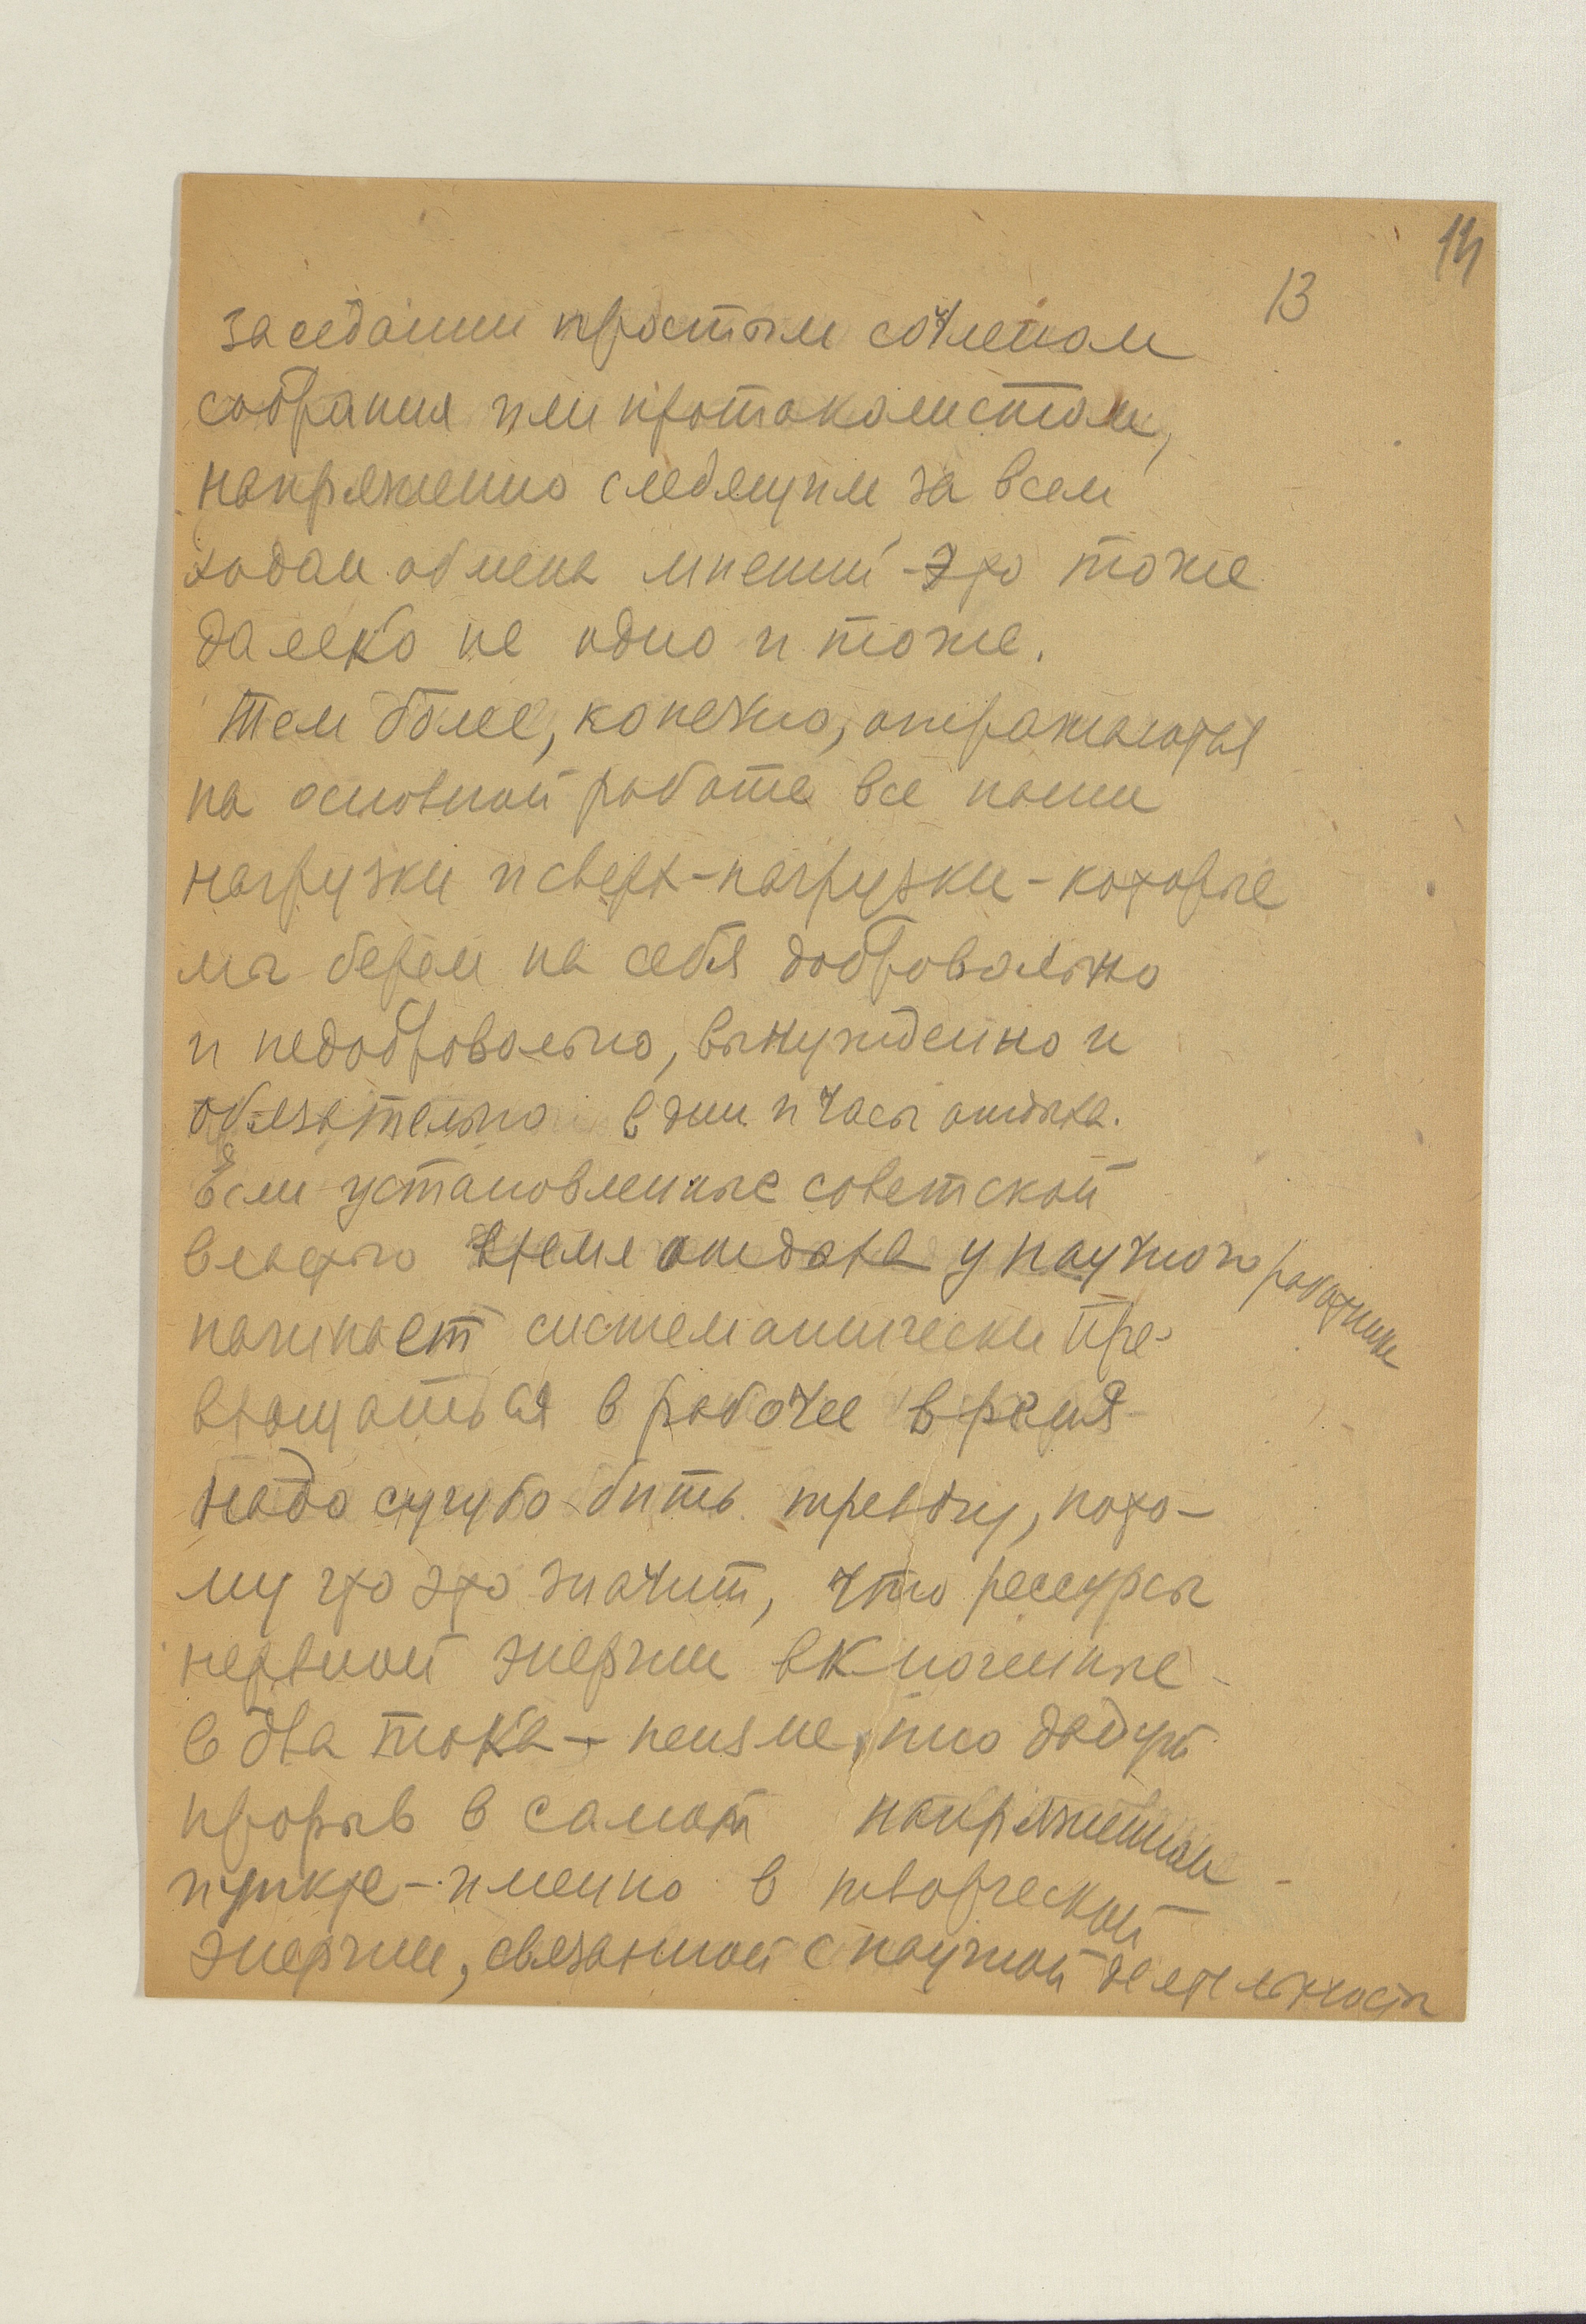 14
13
заседании простым сочленом
собрания или протоколистом,
напряженно следящим за всем
ходом обмена мнений - это тоже
далеко не одно и тоже.
Тем более, конечно, отражаются
на основной работе все наши
нагрузки и сверх-нагрузки - которые
мы берем на себя добровольно
и недобровольно, вынужденно и
обязательно в дни и часы отдыха.
Если установленные советской
властью время отдыха у научного работника
начинает систематически пре-
вращаться в рабочее время -
надо сугубо бить тревогу, пото-
му что это значит, что ресурсы
нервной энергии включенные
в два тока - неизменно дадут
прорыв в самом напряженном
пункте - именно в творческой
энергии, связанной с научной деятельности